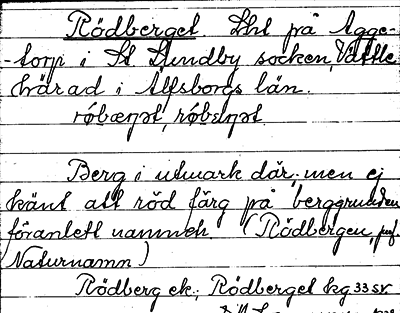 Rödberget Lht på Agge-
-torp i St Lundby socken, Vättle
härad i Älfsborgs län.
Berg i utmark där; men ej
känt att röd färg på berggrunden
föranlett namnet. (Rödbergen, jmf.
Naturnamn)
Rödberg ek.; Rödberget kg 33 sv